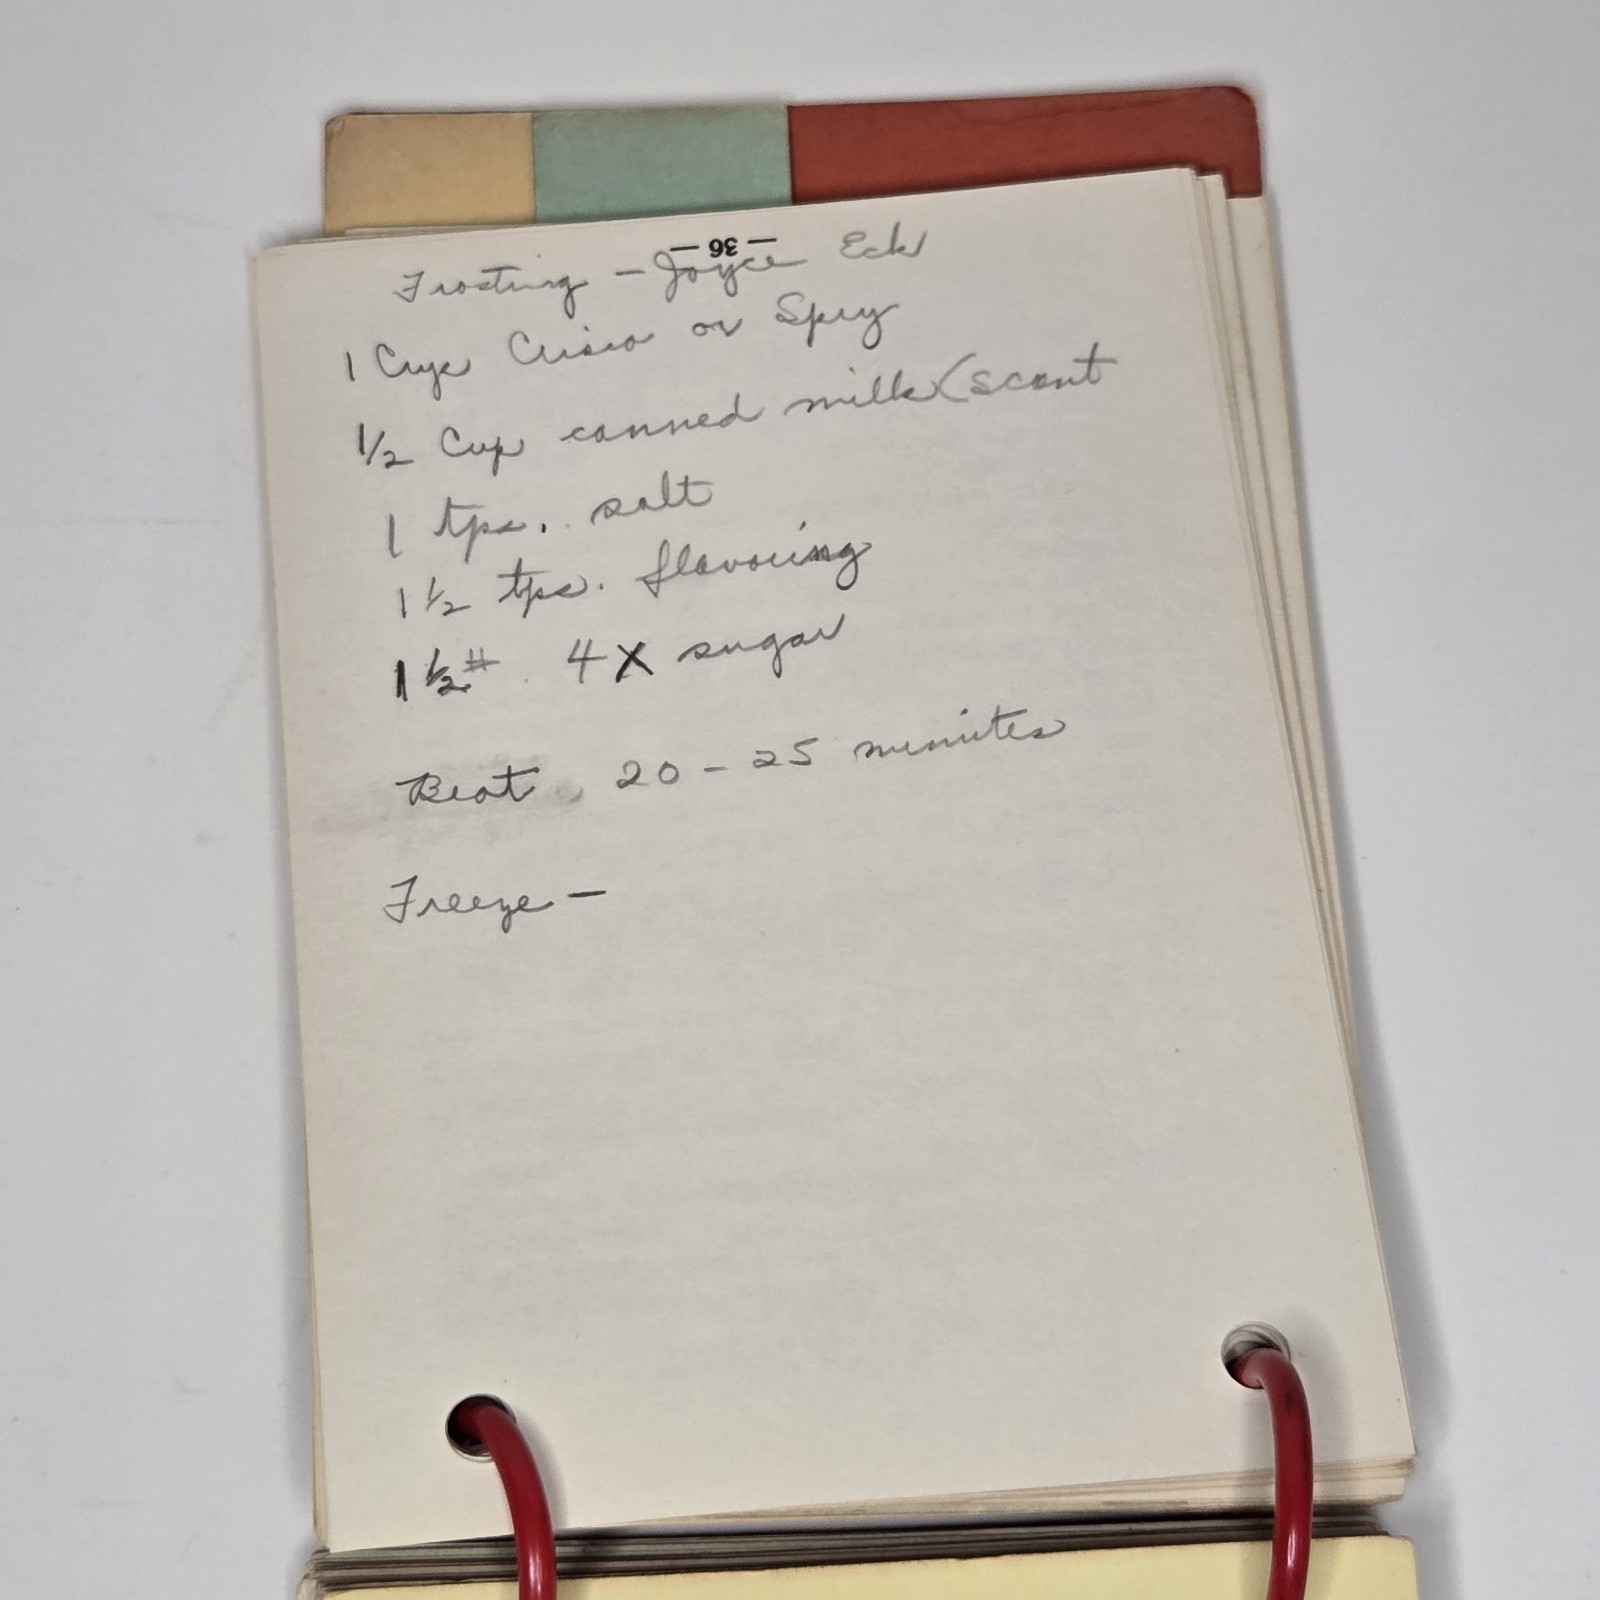 — 36 —
Frosting – Joyce Eck
1 Cup Crisco or Spry
1/2 Cup canned milk (scant
1 tps. salt
1 1/2 tps. flavoring
1 1/2 # 4X sugar
Beat 20 – 25 minites
Freeze –